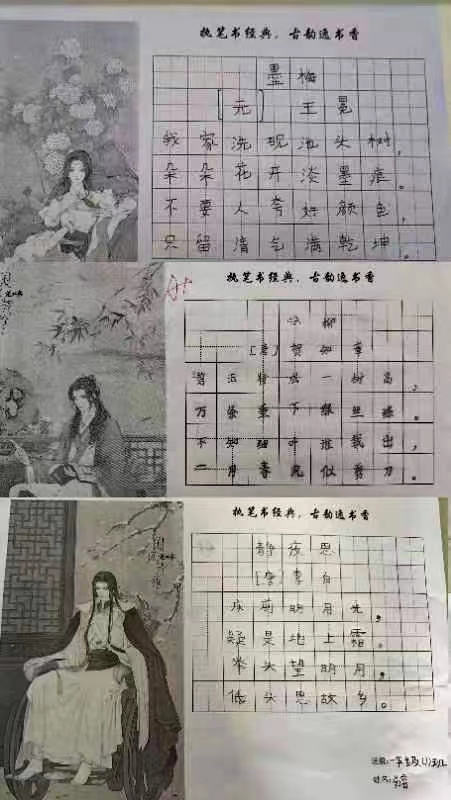 执笔书经典，古韵逸书香
墨梅
[元] 王冕
我家洗砚池头树，
朵朵花开淡墨痕。
不要人夸好颜色，
只留清气满乾坤。
执笔书经典，古韵逸书香
咏柳
[唐] 贺知章
碧玉妆成一树高，
万条垂下绿丝绦。
不知细叶谁裁出，
二月春风似剪刀。
执笔书经典，古韵逸书香
静夜思
[唐] 李白
床前明月光，
疑是地上霜。
举头望明月，
低头思故乡。
班级：一年级(1)班
姓名：